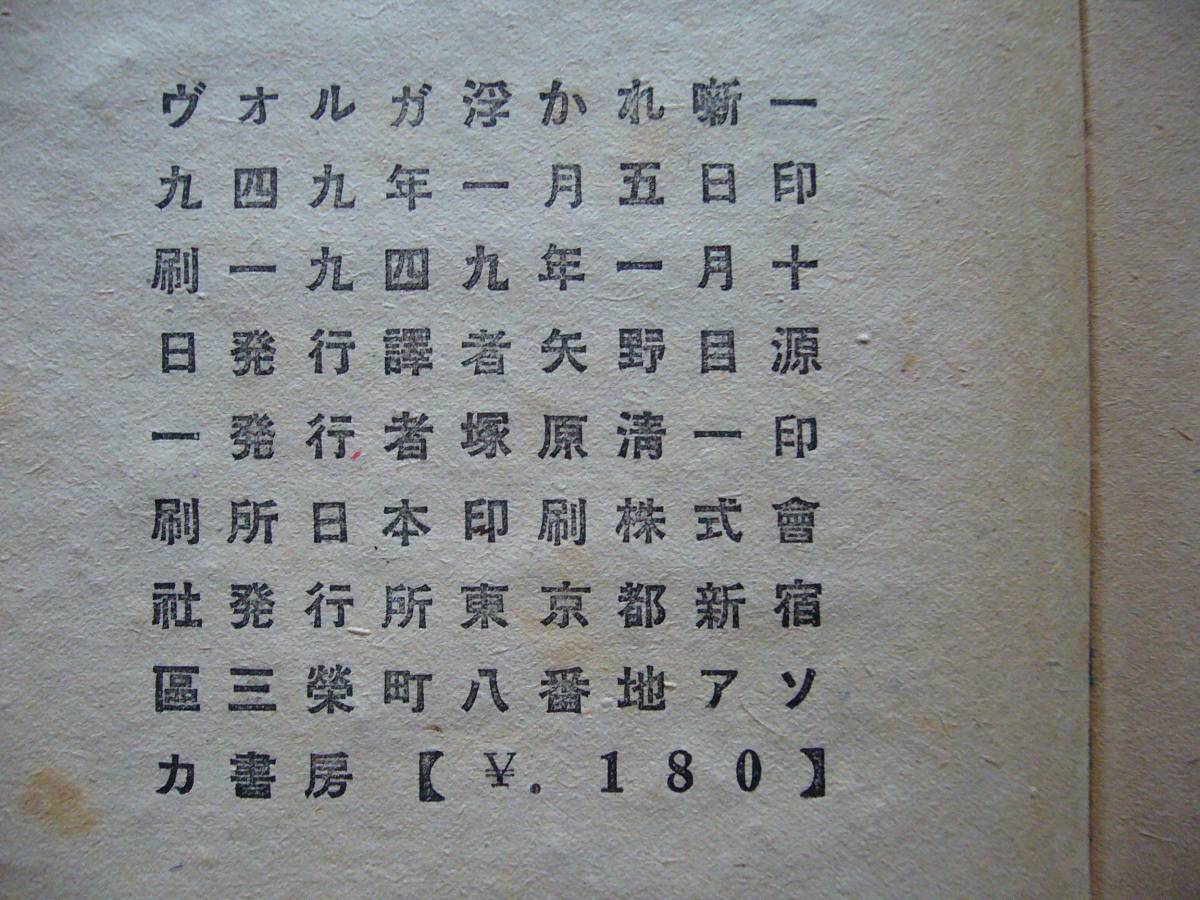 ヴォルガ浮かれ噺一
九四九年一月五日印
刷一九四九年一月十
日発行譯者矢野目源
一発行者塚原清一印
刷所日本印刷株式會
社発行所東京都新宿
區三榮町八番地アソ
カ書房【¥.180】